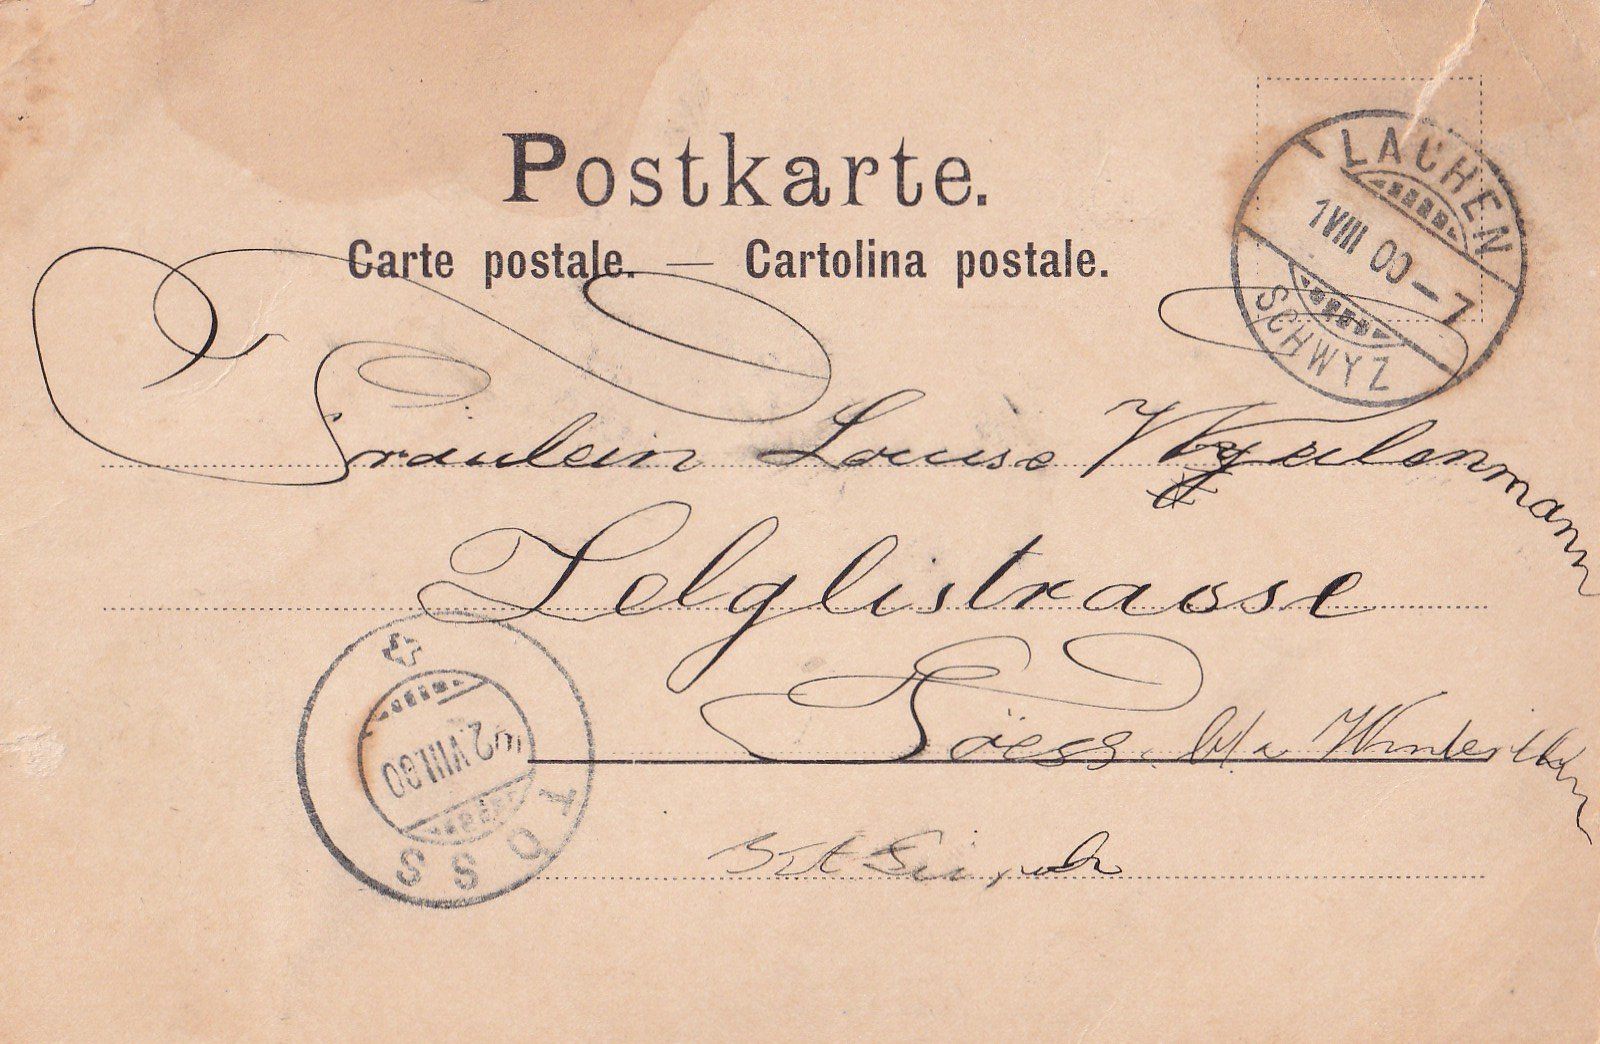 Postkarte.
Carte postale. — Cartolina postale.
LACHEN
1 VIII 00 – 7
SCHWYZ
Fräulein Louise
Selglistrasse
Töess. b/a Winterthur
2. VIII. 00
TÖSS